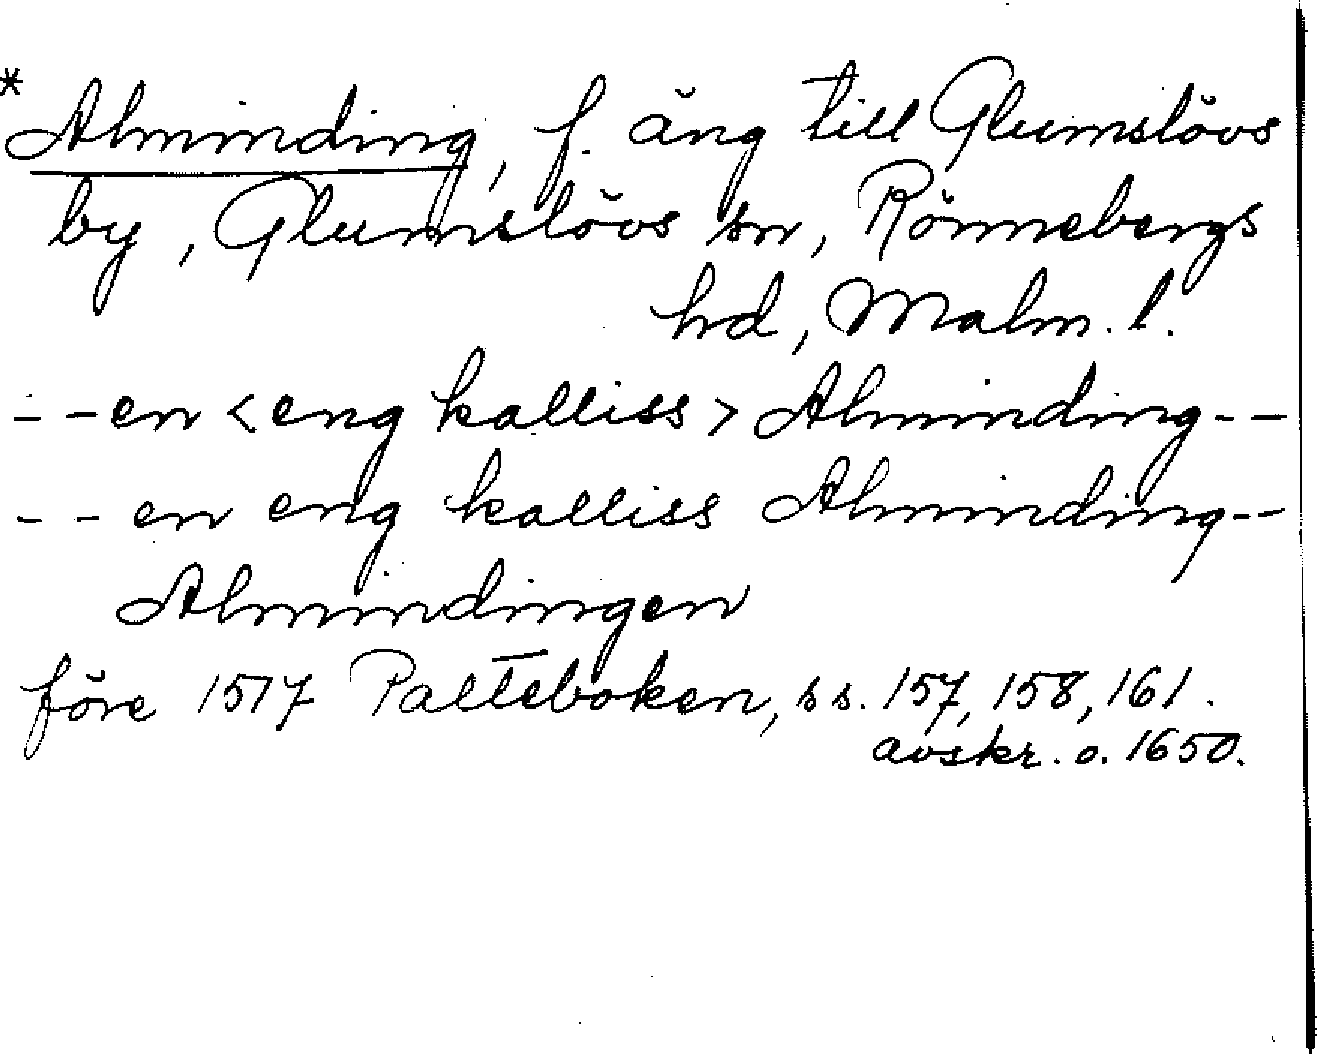 *Alminding, f. äng till Glumslövs
by, Glumslövs sn, Rönnebergs
hd, Malm. l.
- - en < eng kalliss > Alminding - -
- - en eng kalliss Alminding - -
Almindingen
före 1517 Palteboken, ss. 157, 158, 161.
avskr. o. 1650.